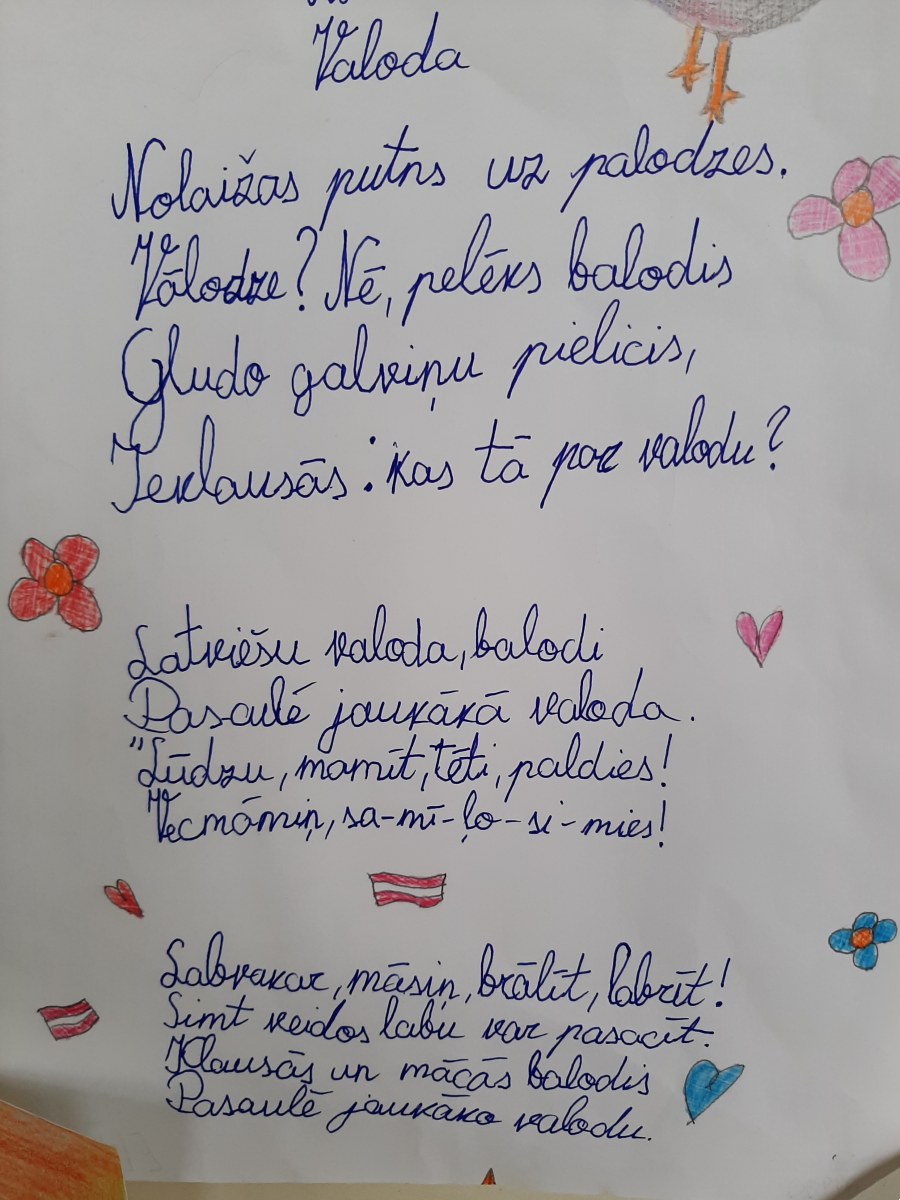 Valoda
Nolaižas putns uz palodzes.
Vālodze? Nē, pelēks balodis
Gludo galviņu pielicis,
Ieklausās: kas tā par valodu?
Latviešu valoda, balodi
Pasaulē jaukākā valoda.
"Lūdzu, mamīt, tēti, paldies!
Vecmāmiņ, sa-mī-ļo-si-mies!
Labvakar, māsiņ, brālīt, labrīt!
Simt veidos labu var pasacīt.
Klausās un mācās balodis
Pasaulē jaukāko valodu.